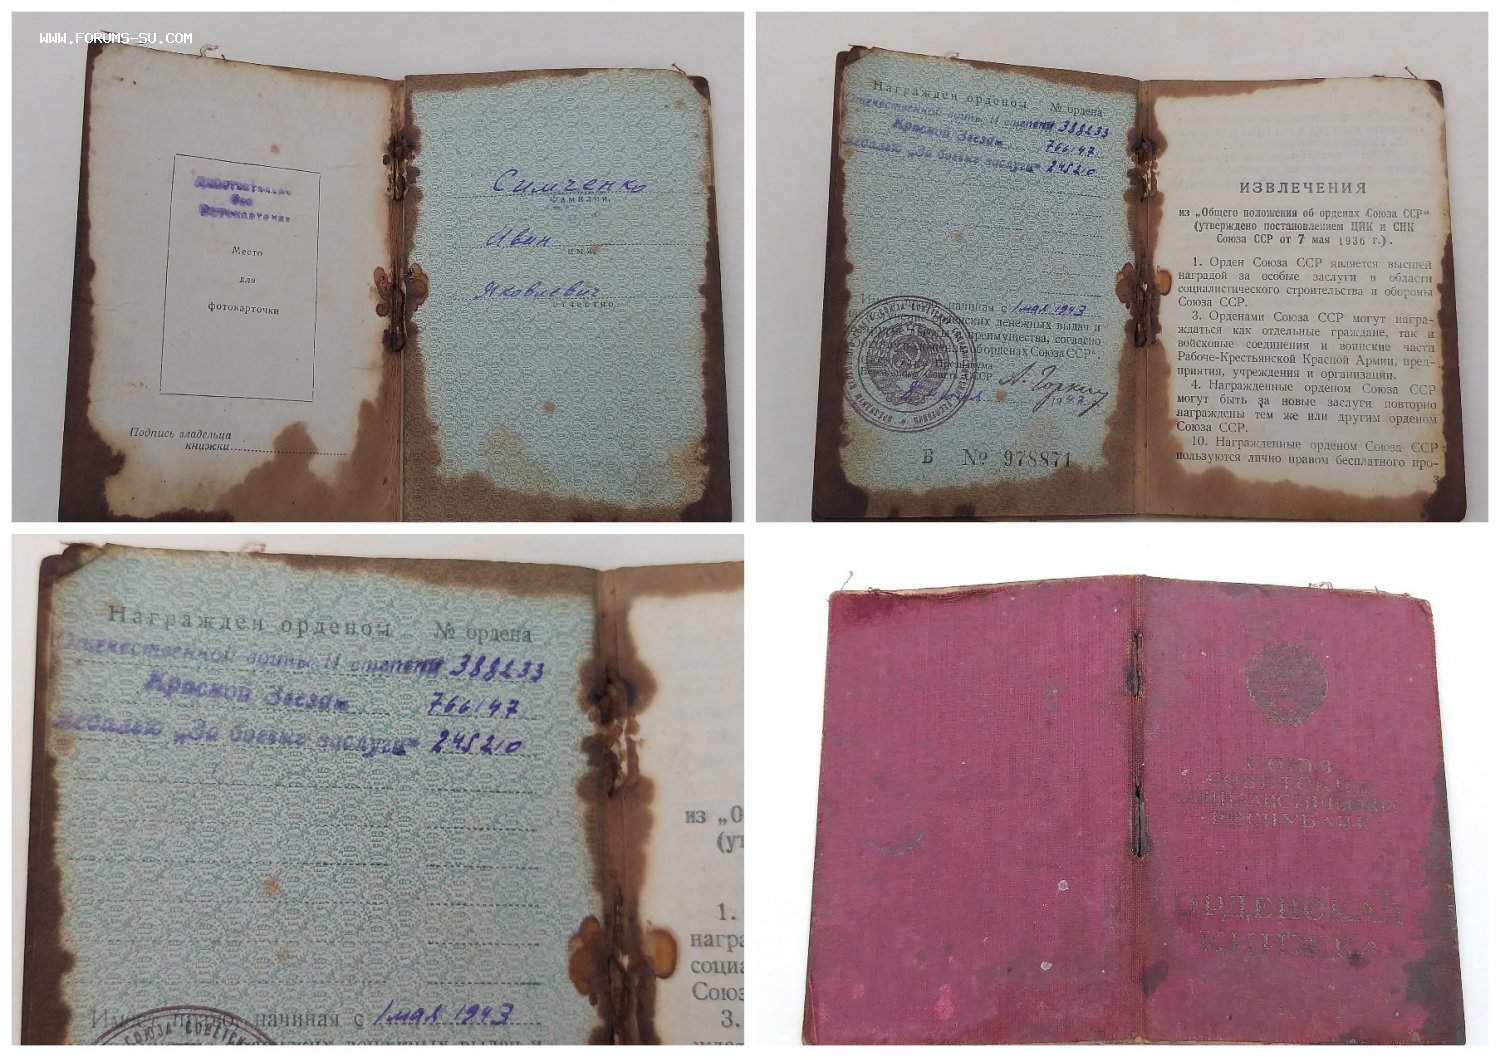 WWW.FORUMS-SU.COM
Действительно
без
фотокарточки
Место
для
фотокарточки
Подпись владельца
книжки
Симченко
фамилия
Иван
имя
Яковлевич
отчество
Награжден орденом № ордена
Отечественной войны II степени 388233
Красной Звезды 766147
медалью „За боевые заслуги“ 245210
начиная с 1 мая 1943
денежных выдач и
преимущества, согласно
об орденах Союза ССР“.
Президиума
СССР А. Горкин
1947
В № 978871
ИЗВЛЕЧЕНИЯ
из „Общего положения об орденах Союза ССР“
(утверждено постановлением ЦИК и СНК
Союза ССР от 7 мая 1936 г.).
1. Орден Союза ССР является высшей
наградой за особые заслуги в области
социалистического строительства и обороны
Союза ССР.
3. Орденами Союза ССР могут награ-
ждаться как отдельные граждане, так и
войсковые соединения и воинские части
Рабоче-Крестьянской Красной Армии, пред-
приятия, учреждения и организации.
4. Награжденные орденом Союза ССР
могут быть за новые заслуги повторно
награждены тем же или другим орденом
Союза ССР.
10. Награжденные орденом Союза ССР
пользуются лично правом бесплатного про-
3
Награжден орденом № ордена
Отечественной войны II степени 388233
Красной Звезды 766147
медалью „За боевые заслуги“ 245210
Имеет право, начиная с 1 мая 1943
денежных выдач и
СОЮЗА СОВЕТСКИХ
из „О
(ут
1.
награ
социа
Союз
3.
СОЮЗ
СОВЕТСКИХ
СОЦИАЛИСТИЧЕСКИХ
РЕСПУБЛИК
ОРДЕНСКАЯ
КНИЖКА